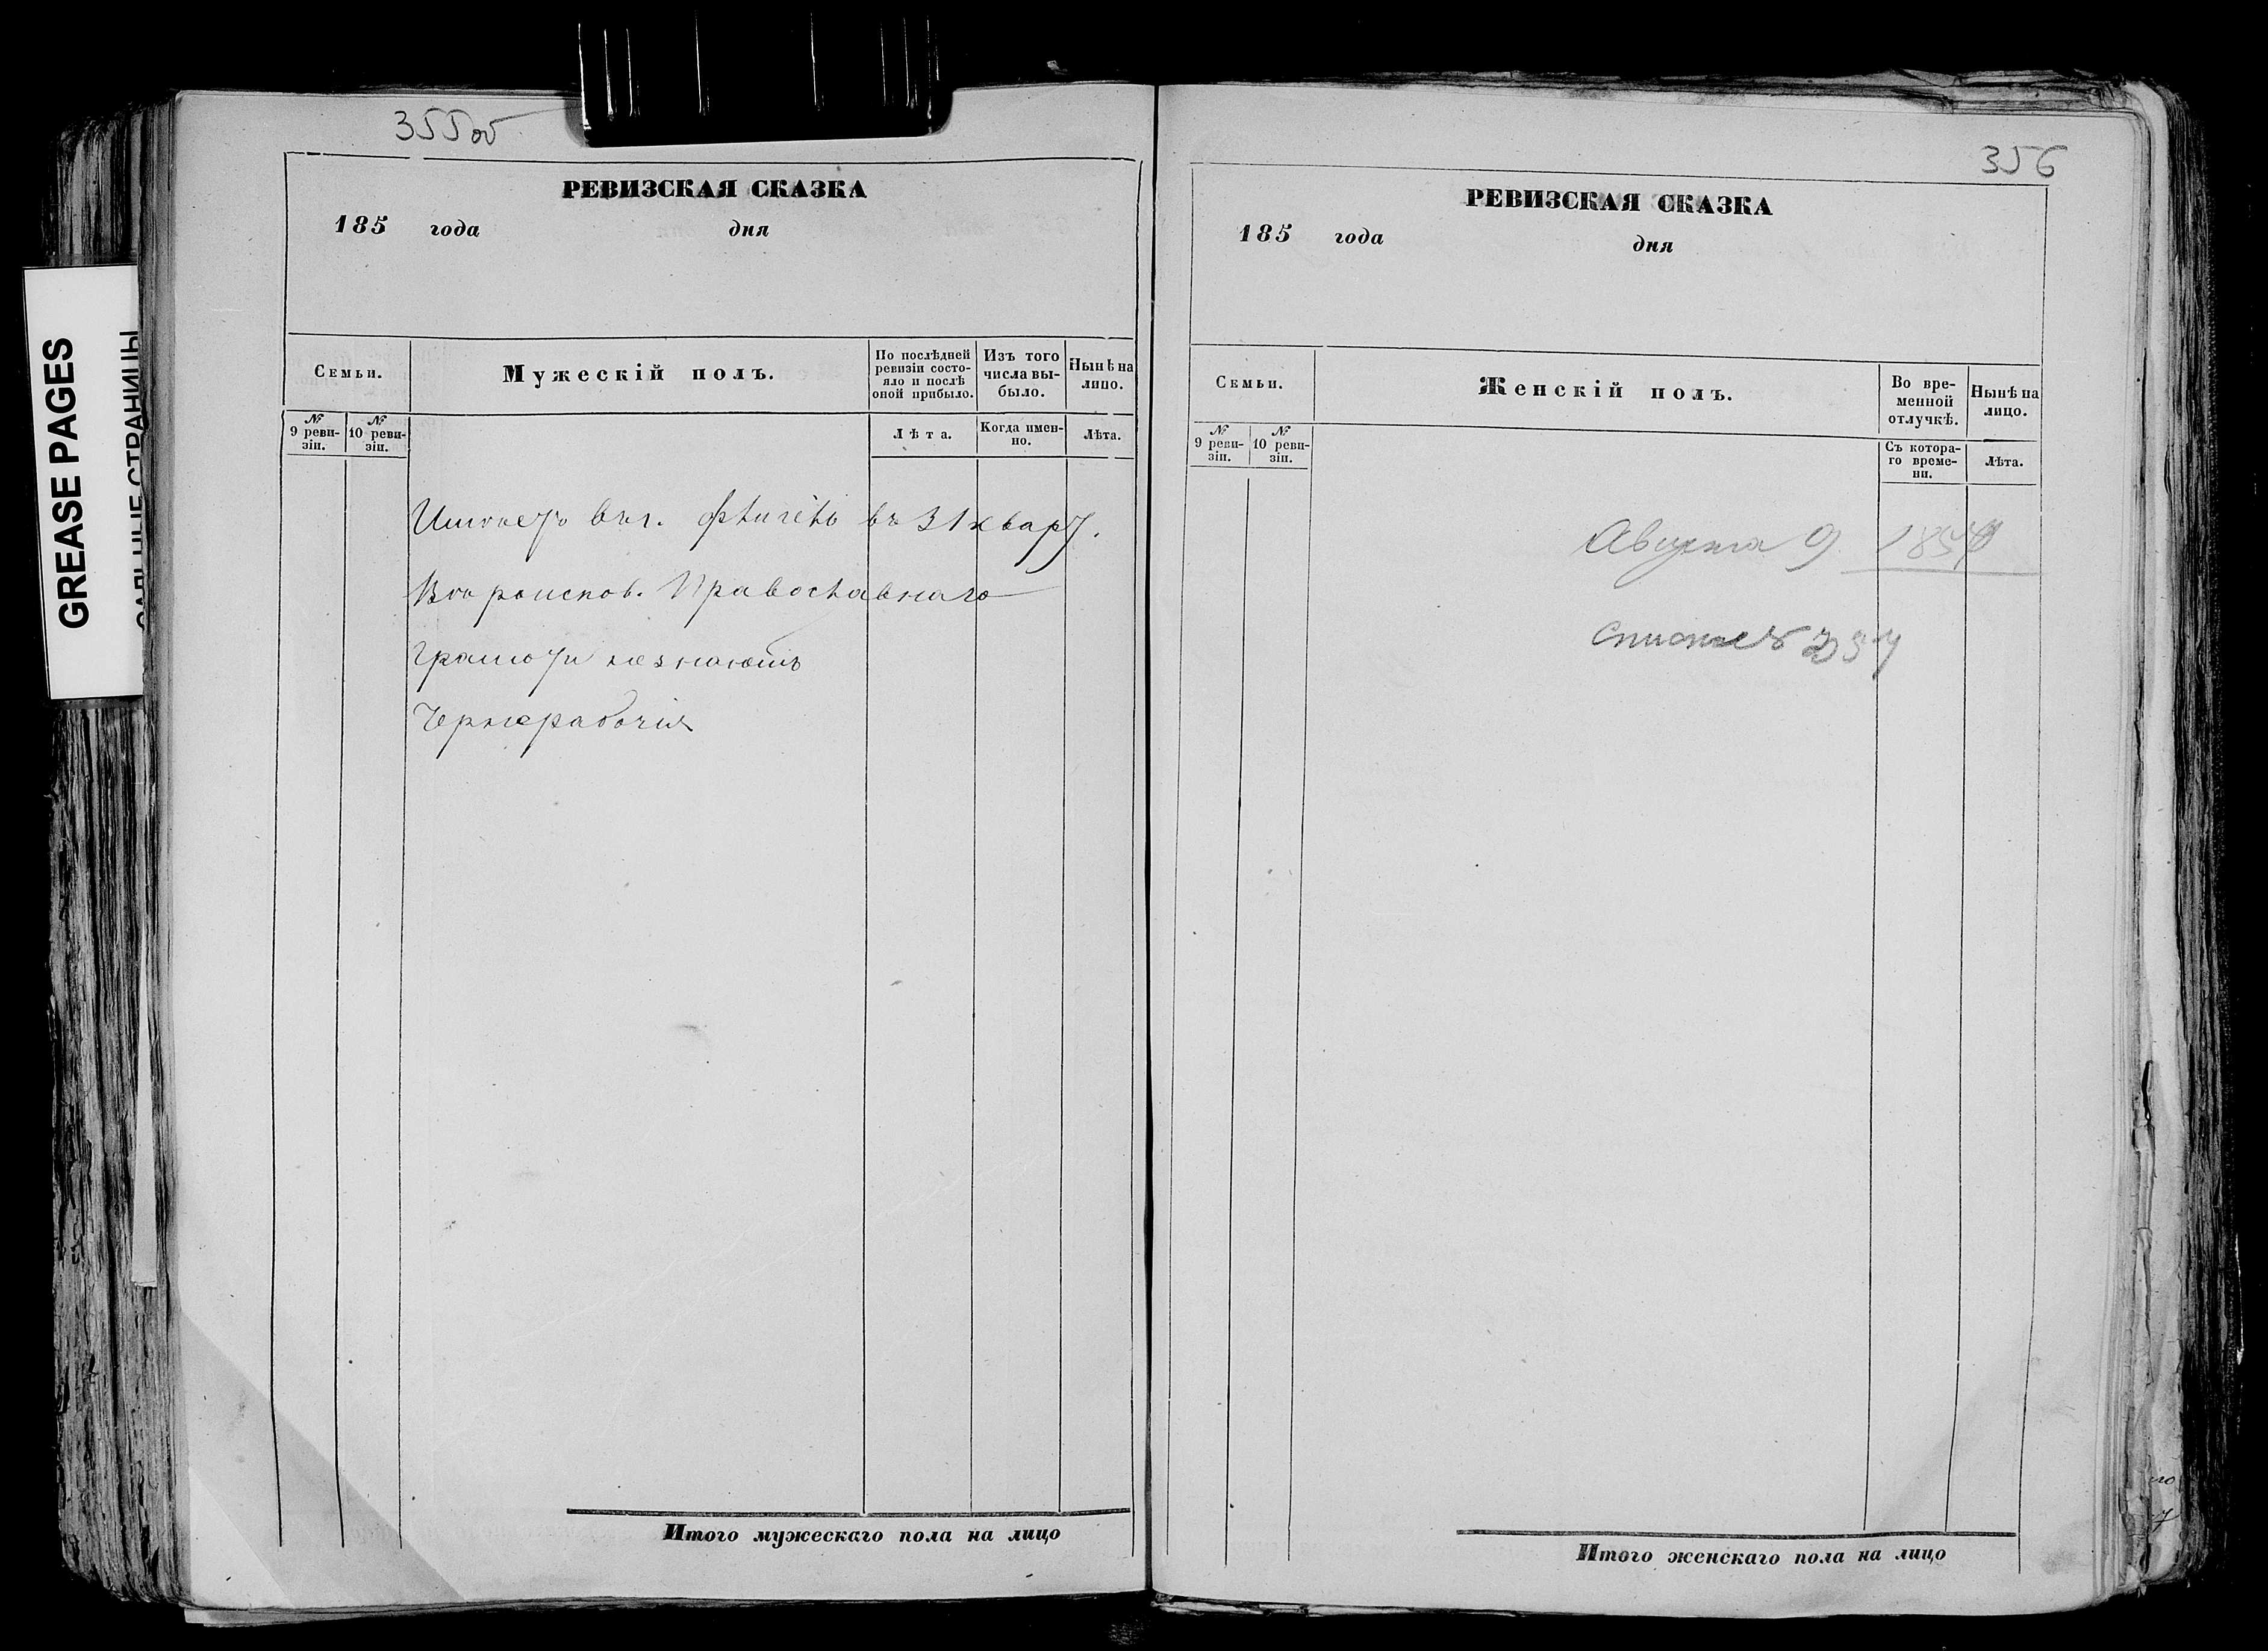 GREASE PAGES
САЛЬНЫЕ СТРАНИЦЫ
355об
РЕВИЗСКАЯ СКАЗКА
185 года дня
Семьи.
Мужескій полъ.
По послѣдней ревизіи состо-
яло и послѣ оной прибыло.
Изъ того числа вы-
было.
Нынѣ на лицо.
№ 9 реви-
зіи.
№ 10 реви-
зіи.
Лѣта.
Когда имен-
но.
Лѣта.
въ 3 кварт.
Православнаго
грамоти незнаютъ
Чернорабочія
Итого мужескаго пола на лицо
356
РЕВИЗСКАЯ СКАЗКА
185 года дня
Семьи.
Женскій полъ.
Во вре-
менной
отлучкѣ.
Нынѣ на
лицо.
№ 9 реви-
зіи.
№ 10 реви-
зіи.
Съ котора-
го време-
ни.
Лѣта.
Августа 9 185
Итого женскаго пола на лицо